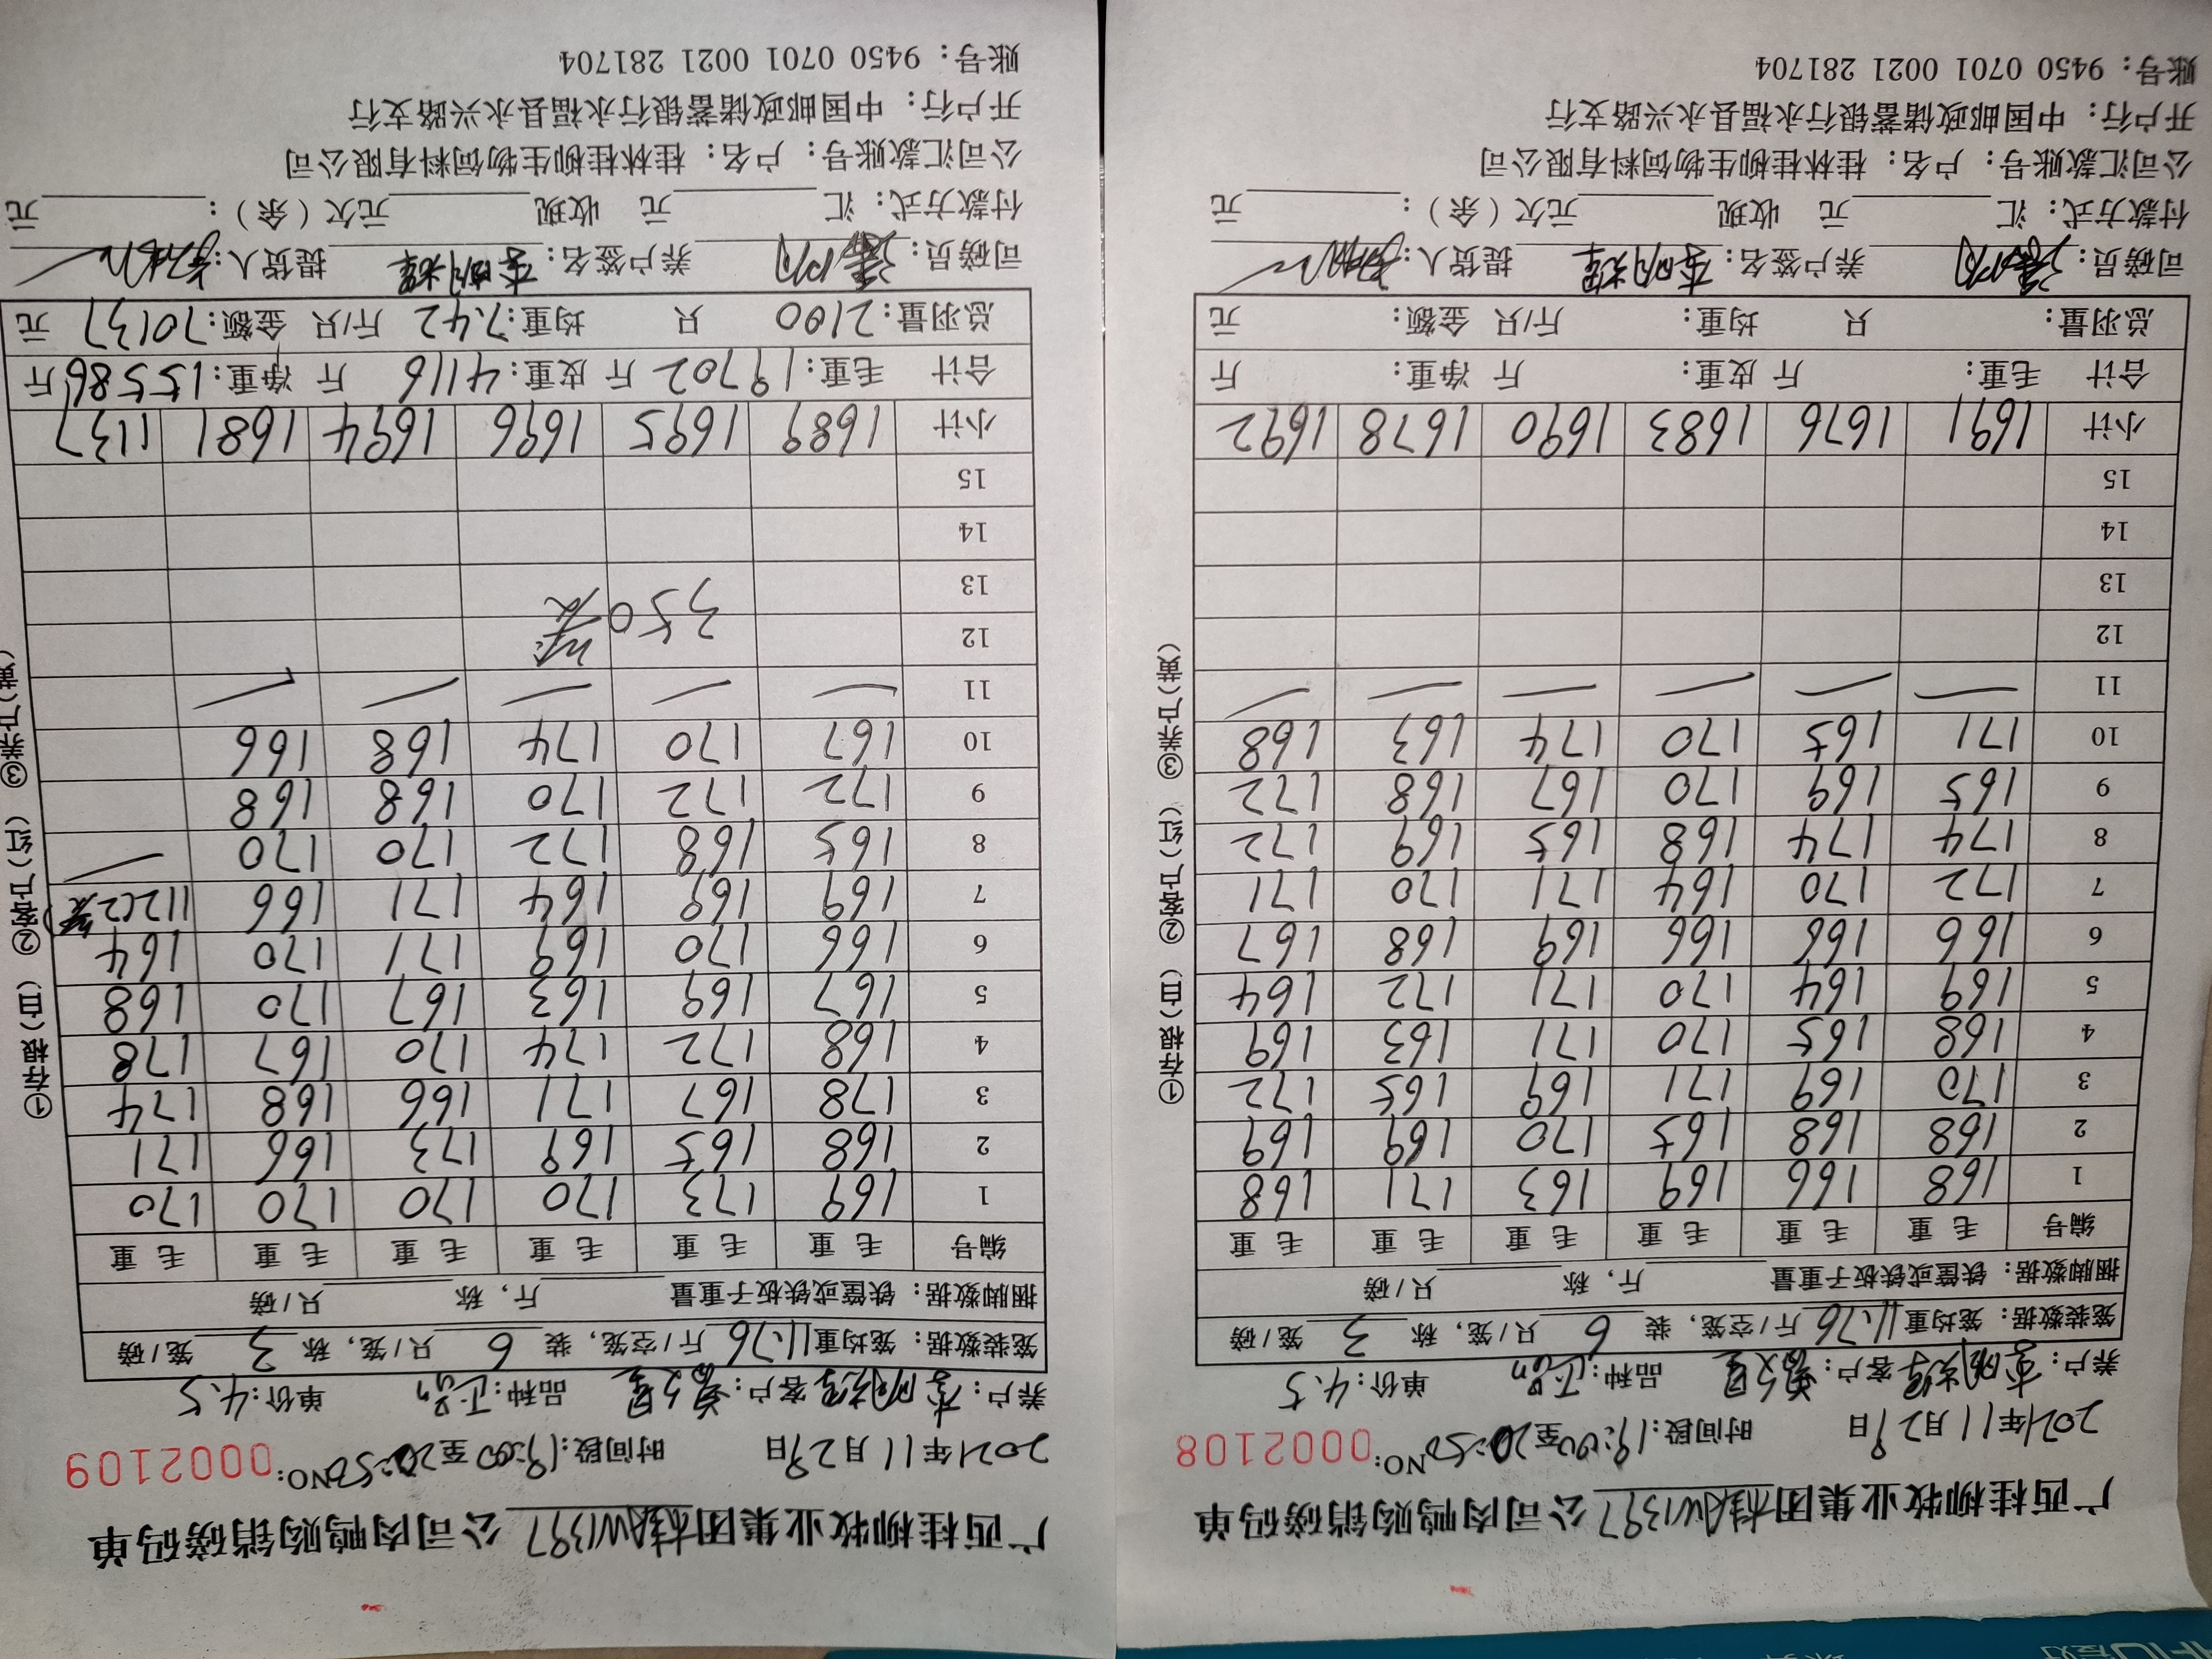 广西桂柳牧业集团桂AW1397公司肉鸭购销磅码单
2021年11月29日 时间段:19:00至20:50 NO:0002108
养户: 李明辉 客户: 品种: 单价:4.5
笼装数据: 笼均重11.76斤/空笼, 装 6 只/笼, 称 3 笼/磅
捆脚数据: 铁筐或铁板子重量 斤, 称 只/磅
编号 毛重 毛重 毛重 毛重 毛重 毛重
1 168 166 169 163 171 168
2 168 168 165 170 169 169
3 170 169 171 169 165 172
4 168 165 170 171 163 169
5 169 164 170 171 172 164
6 166 166 166 169 168 167
7 172 170 164 171 170 171
8 174 174 168 165 169 172
9 165 169 170 167 168 172
10 171 165 170 174 163 168
11
12
13
14
15
小计 1691 1676 1683 1690 1678 1692
合计 毛重: 斤 皮重: 斤 净重: 斤
总羽量: 只 均重: 斤/只 金额: 元
司磅员: 养户签名:李明辉 提货人:
付款方式: 汇 元 收现 元欠(余): 元
公司汇款账号: 户名: 桂林桂柳生物饲料有限公司
开户行: 中国邮政储蓄银行永福县永兴路支行
账号: 9450 0701 0021 281704
①存根(白) ②客户(红) ③养户(黄)
广西桂柳牧业集团桂AW1397公司肉鸭购销磅码单
2021年11月29日 时间段:19:00至20:50 NO:0002109
养户: 李明辉 客户: 品种: 单价:4.5
笼装数据: 笼均重11.76斤/空笼, 装 6 只/笼, 称 3 笼/磅
捆脚数据: 铁筐或铁板子重量 斤, 称 只/磅
编号 毛重 毛重 毛重 毛重 毛重 毛重
1 169 173 170 170 170 170
2 168 165 169 173 166 171
3 178 167 171 166 168 174
4 168 172 174 170 167 178
5 167 169 163 167 170 168
6 166 170 169 171 170 164
7 169 169 164 171 166 112(2笼)
8 165 168 172 170 170
9 172 172 170 168 168
10 167 170 174 168 166
11
12 350笼
13
14
15
小计 1689 1695 1696 1694 1681 1137
合计 毛重:19702斤 皮重:4116 斤 净重:15586斤
总羽量:2100 只 均重:7.42 斤/只 金额:70137 元
司磅员: 养户签名:李明辉 提货人:
付款方式: 汇 元 收现 元欠(余): 元
公司汇款账号: 户名: 桂林桂柳生物饲料有限公司
开户行: 中国邮政储蓄银行永福县永兴路支行
账号: 9450 0701 0021 281704
①存根(白) ②客户(红) ③养户(黄)